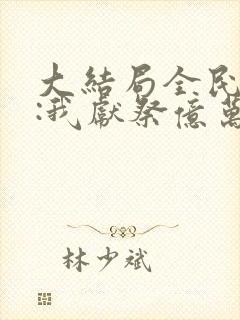 大結局全民
:我獻祭億萬
林少斌